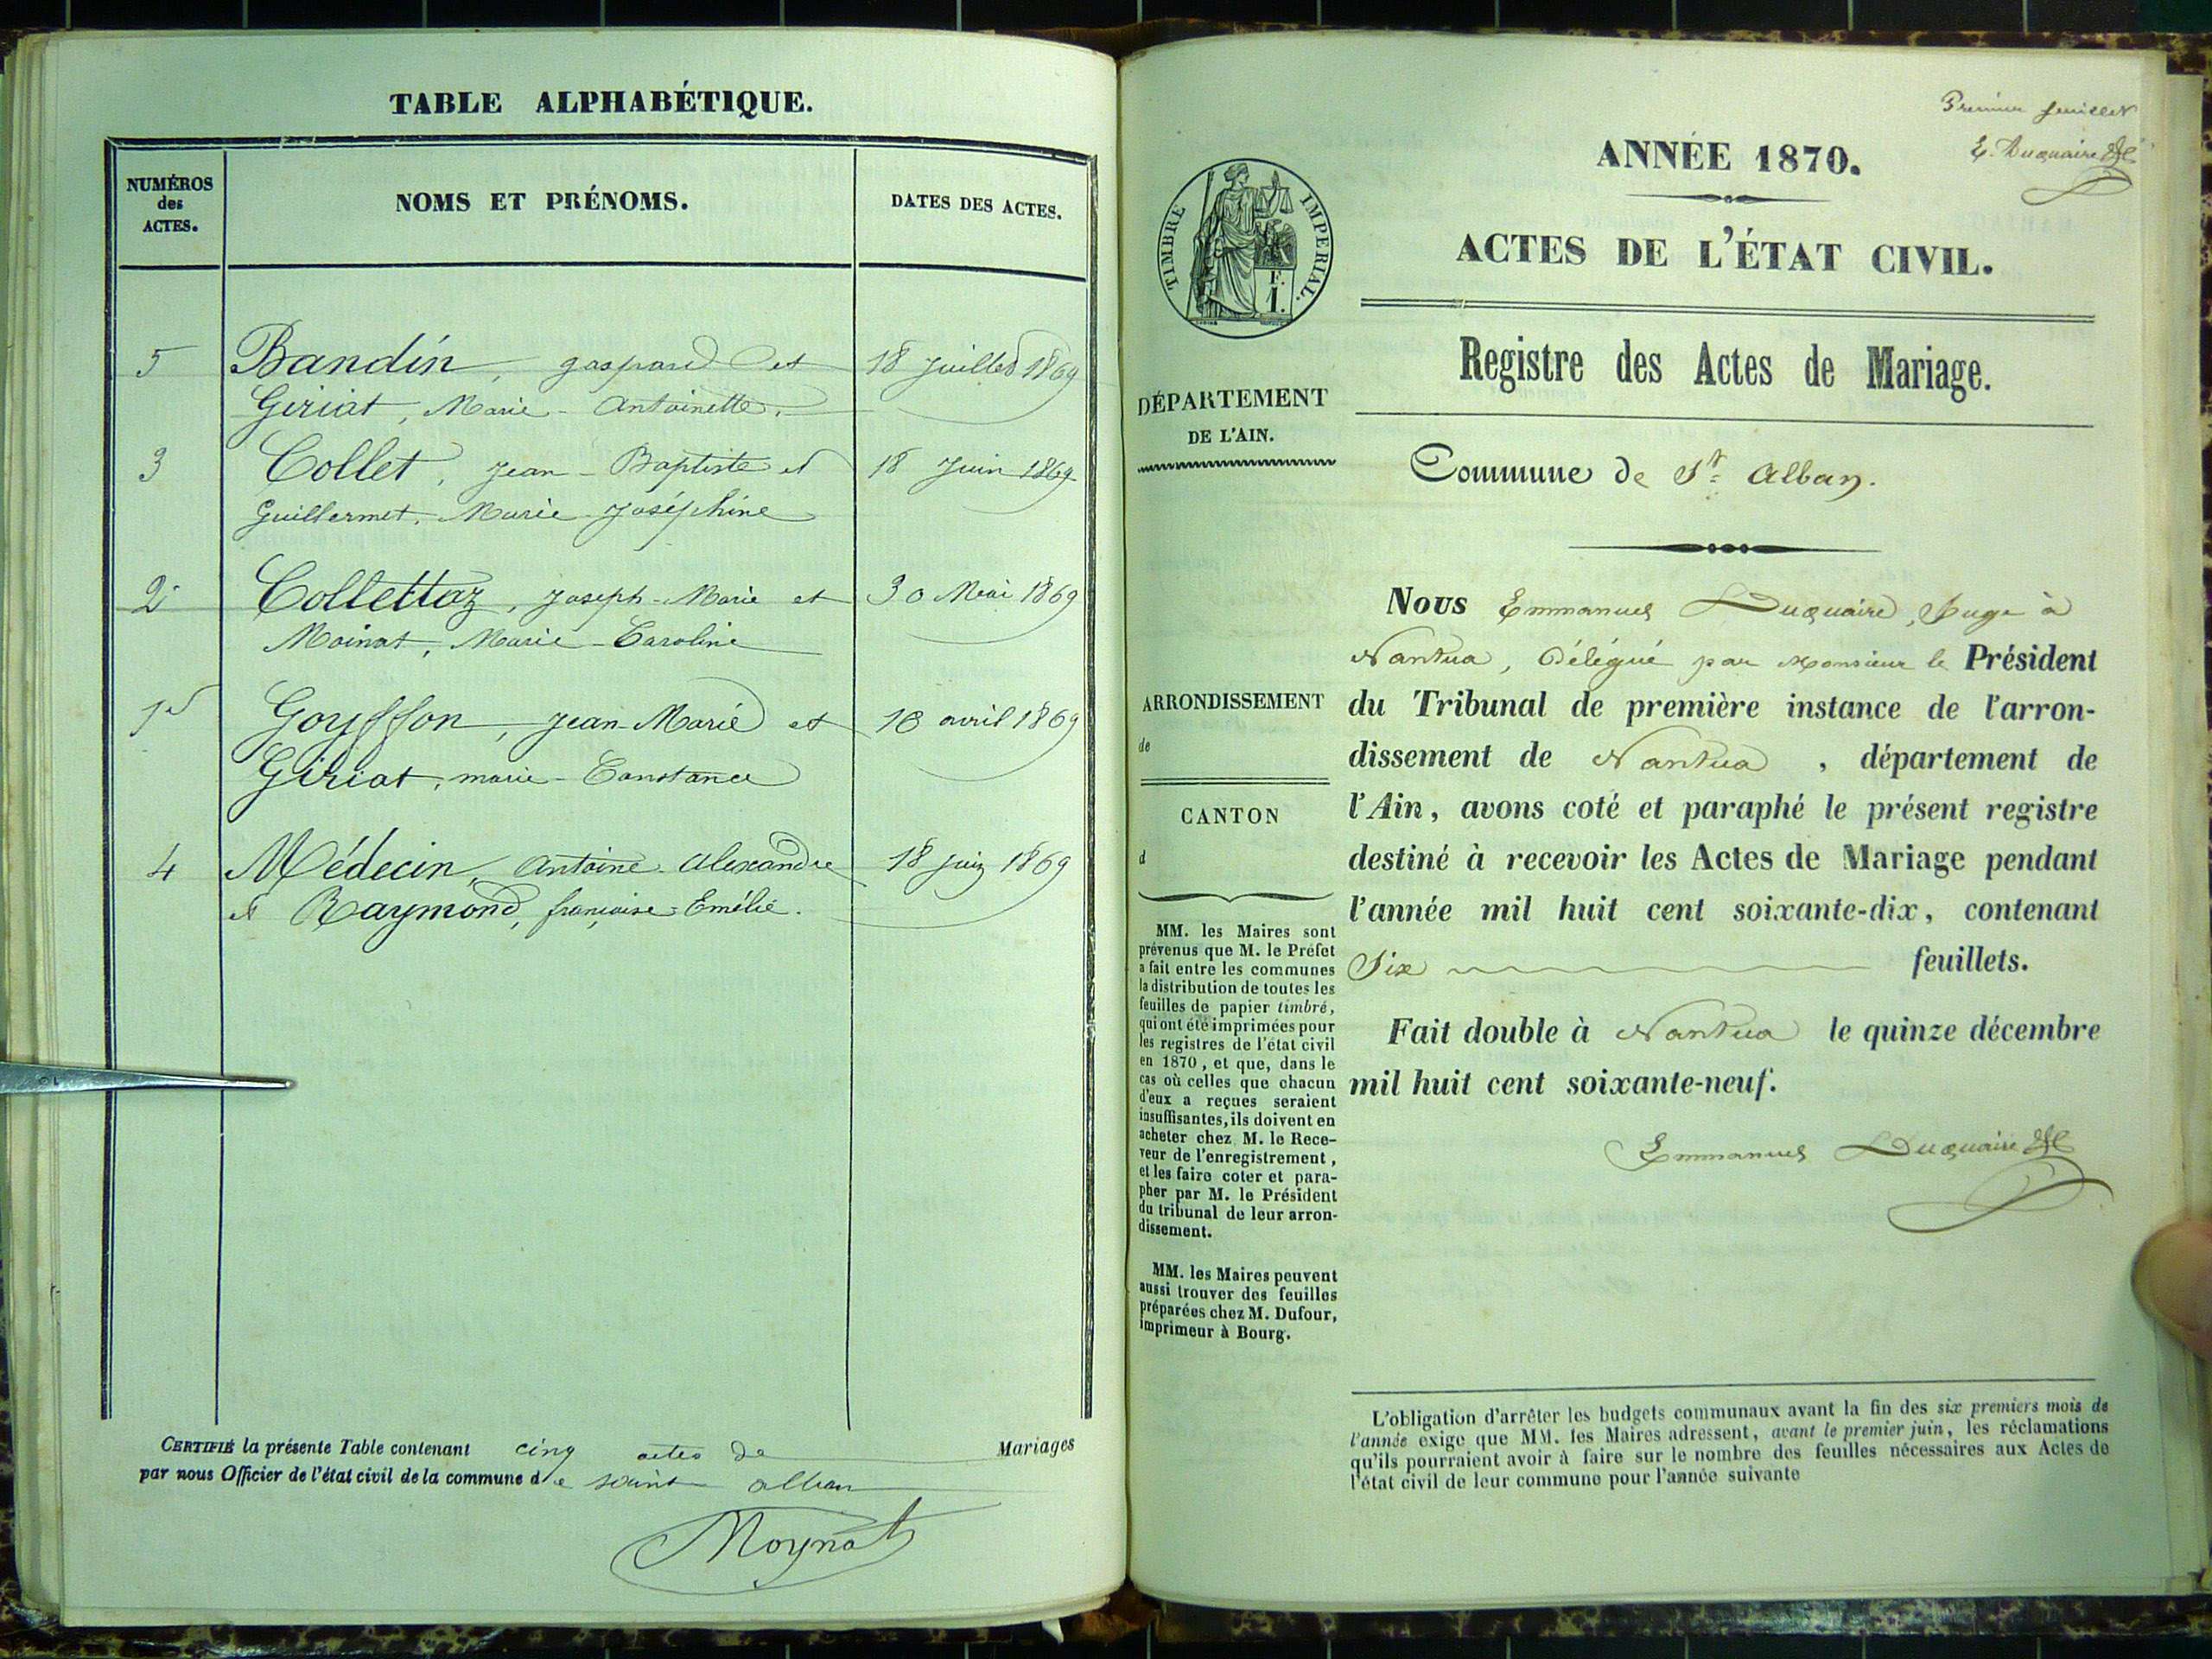 TABLE ALPHABÉTIQUE.
NUMÉROS
des
ACTES.
NOMS ET PRÉNOMS.
DATES DES ACTES.
5 Bandin, gaspard et 18 Juillet 1869
Giriat, Marie-Antoinette.
3 Collet, Jean-Baptiste et 18 Juin 1869
Guillermet, Marie Joséphine
2 Collettaz, Joseph-Marie et 30 Mai 1869
Moinat, Marie-Caroline
1er Goyffon, Jean-Marie et avril 1869
Giriat, marie-Constance
4 Médecin, Antoine-Alexandre 18 juin 1869
et Raymond, françoise-Emélie.
CERTIFIÉ la présente Table contenant cinq actes de Mariages
par nous Officier de l'état civil de la commune de saint alban
Moynat
Premier feuillet
E. Duquaire
ANNÉE 1870.
TIMBRE IMPERIAL.
F.
1.
ACTES DE L'ÉTAT CIVIL.
Registre des Actes de Mariage.
DÉPARTEMENT
DE L'AIN.
Commune de St Alban.
ARRONDISSEMENT
de
CANTON
d
MM. les Maires sont
prévenus que M. le Préfet
a fait entre les communes
la distribution de toutes les
feuilles de papier timbré,
qui ont été imprimées pour
les registres de l'état civil
en 1870, et que, dans le
cas où celles que chacun
d'eux a reçues seraient
insuffisantes, ils doivent en
acheter chez M. le Rece-
veur de l'enregistrement,
et les faire coter et para-
pher par M. le Président
du tribunal de leur arron-
dissement.
MM. les Maires peuvent
aussi trouver des feuilles
préparées chez M. Dufour,
imprimeur à Bourg.
Nous Emmanuel Duquaire, Juge à
Nantua, Délégué par Monsieur le Président
du Tribunal de première instance de l'arron-
dissement de Nantua, département de
l'Ain, avons coté et paraphé le présent registre
destiné à recevoir les Actes de Mariage pendant
l'année mil huit cent soixante-dix, contenant
Six feuillets.
Fait double à Nantua le quinze décembre
mil huit cent soixante-neuf.
Emmanuel Duquaire
L'obligation d'arrêter les budgets communaux avant la fin des six premiers mois de
l'année exige que MM. les Maires adressent, avant le premier juin, les réclamations
qu'ils pourraient avoir à faire sur le nombre des feuilles nécessaires aux Actes de
l'état civil de leur commune pour l'année suivante